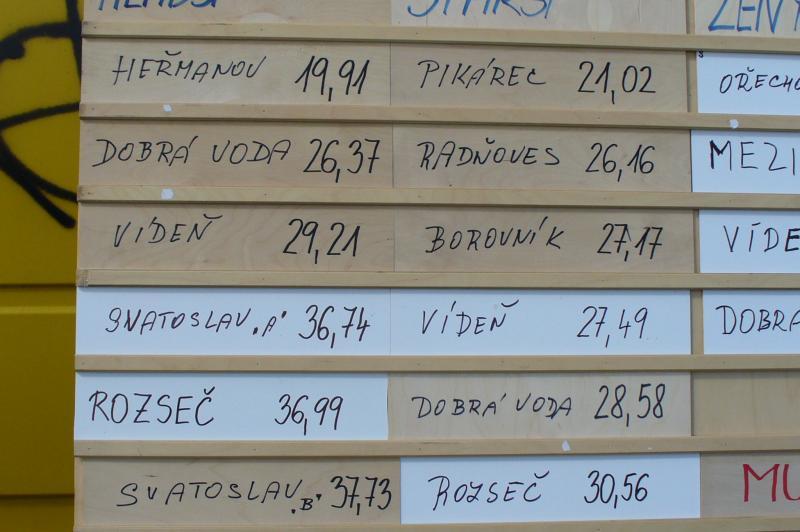 HEŘMANOV 19,91 PIKÁREC 21,02
DOBRÁ VODA 26,37 RADŇOVES 26,16 MEZI
VÍDEŇ 29,21 BOROVNÍK 27,17 VÍDE
SVATOSLAV "A" 36,74 VÍDEŇ 27,49 DOBRA
ROZSEČ 36,99 DOBRÁ VODA 28,58
SVATOSLAV "B" 37,73 ROZSEČ 30,56 MU